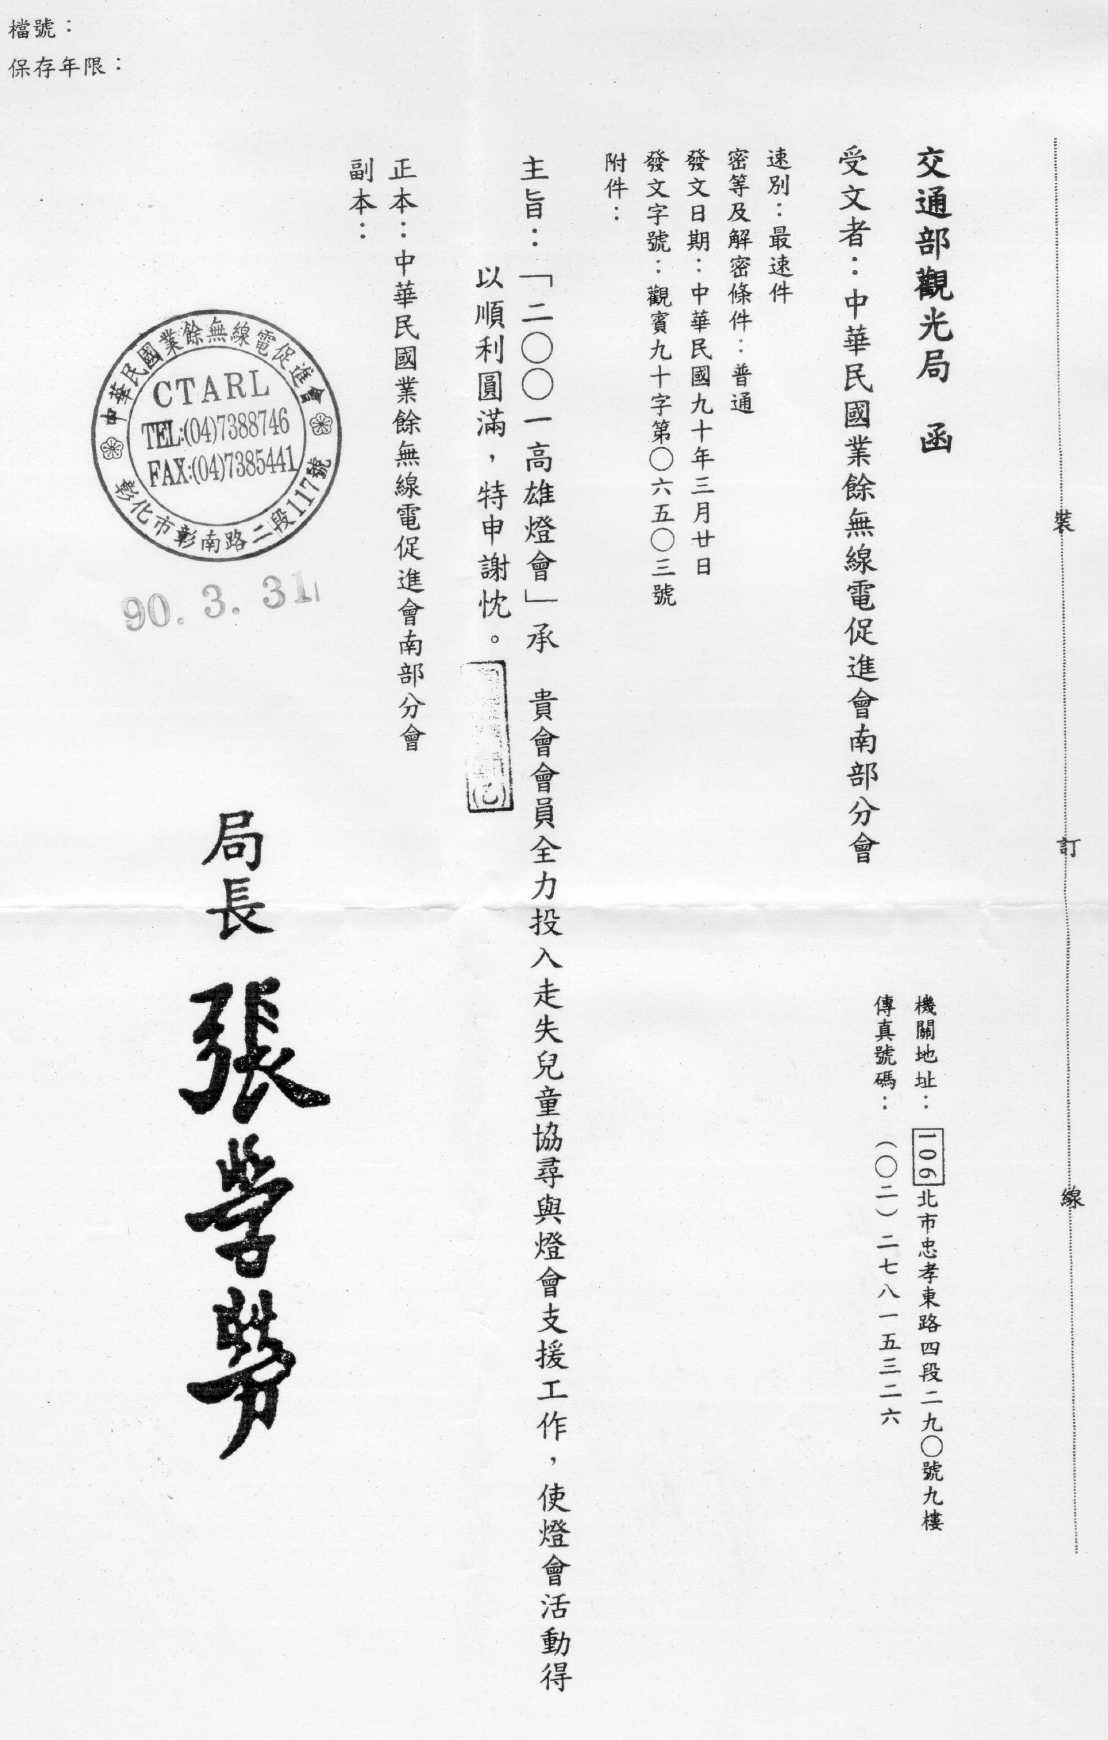 檔號：
保存年限：
裝
訂
線
交通部觀光局　函
機關地址：106北市忠孝東路四段二九〇號九樓
傳真號碼：（〇二）二七八一五三二六
受文者：中華民國業餘無線電促進會南部分會
速別：最速件
密等及解密條件：普通
發文日期：中華民國九十年三月廿日
發文字號：觀賓九十字第〇六五〇三號
附件：
主旨：「二〇〇一高雄燈會」承　貴會會員全力投入走失兒童協尋與燈會支援工作，使燈會活動得
以順利圓滿，特申謝忱。
(乙)
正本：中華民國業餘無線電促進會南部分會
副本：
中華民國業餘無線電促進會
CTARL
TEL:(04)7388746
FAX:(04)7385441
彰化市彰南路二段117號
90. 3. 31
局長 張學勞